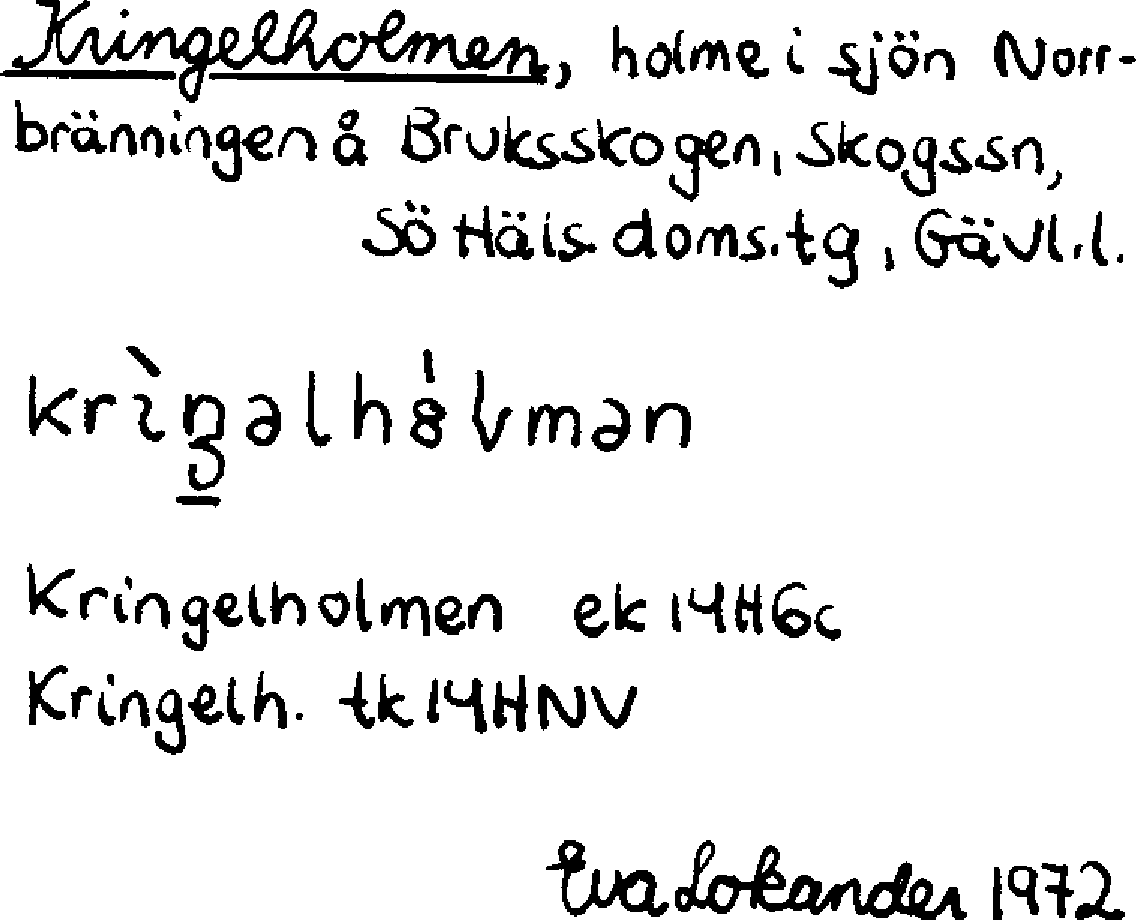 Kringelholmen, holme i sjön Norr-
bränningen å Bruksskogen, Skogssn,
Sö Häls. doms.tg, Gävl.l.
krìŋəlhȯ́lmən
Kringelholmen ek 14H6c
Kringelh. tk 14HNV
Eva Lokander 1972